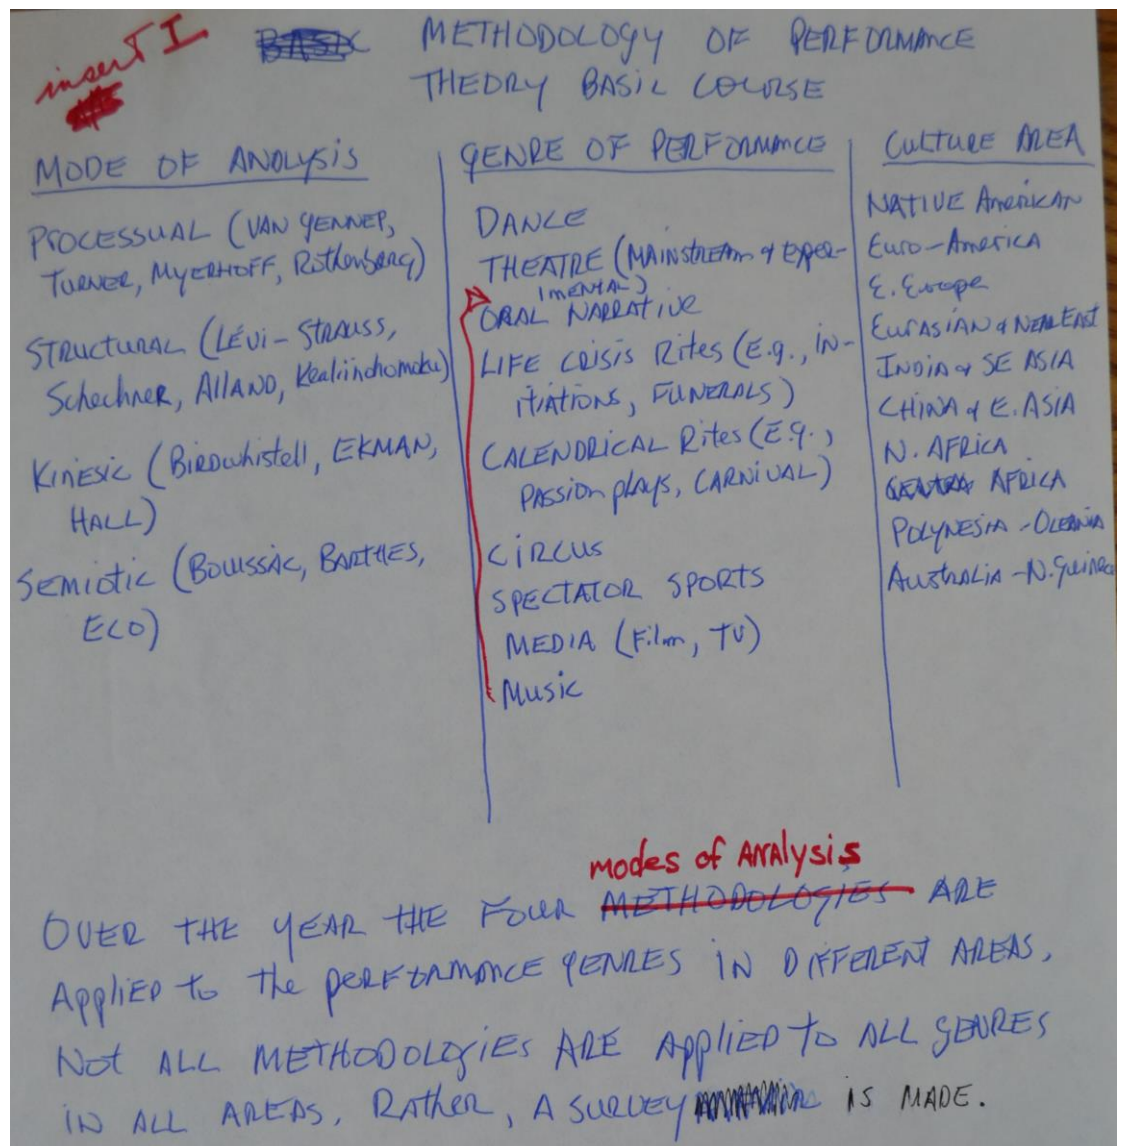 insert I
METHODOLOGY OF PERFORMANCE
THEORY BASIC COURSE
MODE OF ANALYSIS
PROCESSUAL (VAN GENNEP,
TURNER, MYERHOFF, Rothenberg)
STRUCTURAL (LÉVI-STRAUSS,
Schechner, AllAND, Kealiinohomoku)
Kinesic (Birdwhistell, EKMAN,
HALL)
SEMIOTIC (BOUISSAC, BARTHES,
ECO)
GENRE OF PERFORMANCE
DANCE
THEATRE (MAINSTREAM & EXPER-
IMENTAL)
ORAL NARRATIVE
LIFE CRISIS Rites (E.g., IN-
ITIATIONS, FUNERALS)
CALENDRICAL Rites (E.g.,
PASSION plays, CARNIVAL)
CIRCUS
SPECTATOR SPORTS
MEDIA (Film, TV)
MUSIC
CULTURE AREA
NATIVE AMERICAN
Euro-America
E. Europe
EURASIAN & NEAR EAST
INDIA & SE ASIA
CHINA & E. ASIA
N. AFRICA
AFRICA
POLYNESIA-OCEANIA
AUSTRALIA-N. Guinea
modes of ANALYSIS
OVER THE YEAR THE FOUR METHODOLOGIES ARE
Applied to the PERFORMANCE GENRES IN DIFFERENT AREAS.
Not ALL METHODOLOGIES ARE Applied to ALL GENRES
IN ALL AREAS. Rather, A SURVEY IS MADE.